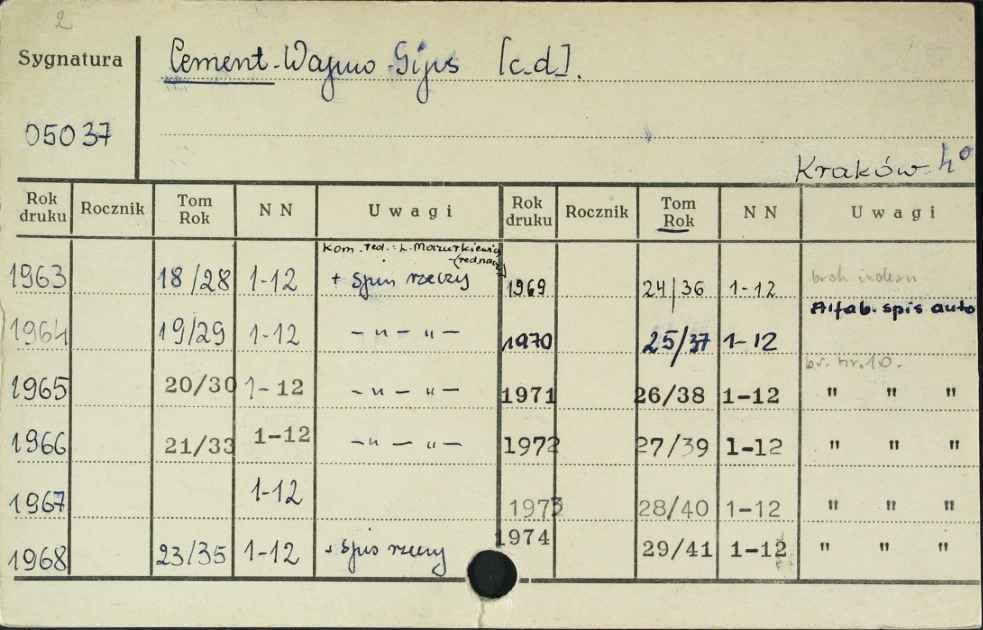 2
Sygnatura
Cement-Wapno-Gips [c.d].
05037
Kraków 4°
Rok druku Rocznik Tom Rok NN Uwagi Rok druku Rocznik Tom Rok NN Uwagi
Kom. red.: L. Mazurkiewicz
(red.nacz)
1963 18/28 1-12 + spis rzeczy 1969 24/36 1-12 brak indexu
Alfab. spis auto
1964 19/29 1-12 - " - " - 1970 25/37 1-12
br. nr. 10.
1965 20/30 1-12 - " - " - 1971 26/38 1-12 " " "
1966 21/33 1-12 - " - " - 1972 27/39 1-12 " " "
1967 1-12 1973 28/40 1-12 " " "
1968 23/35 1-12 + spis rzeczy 1974 29/41 1-12 " " "